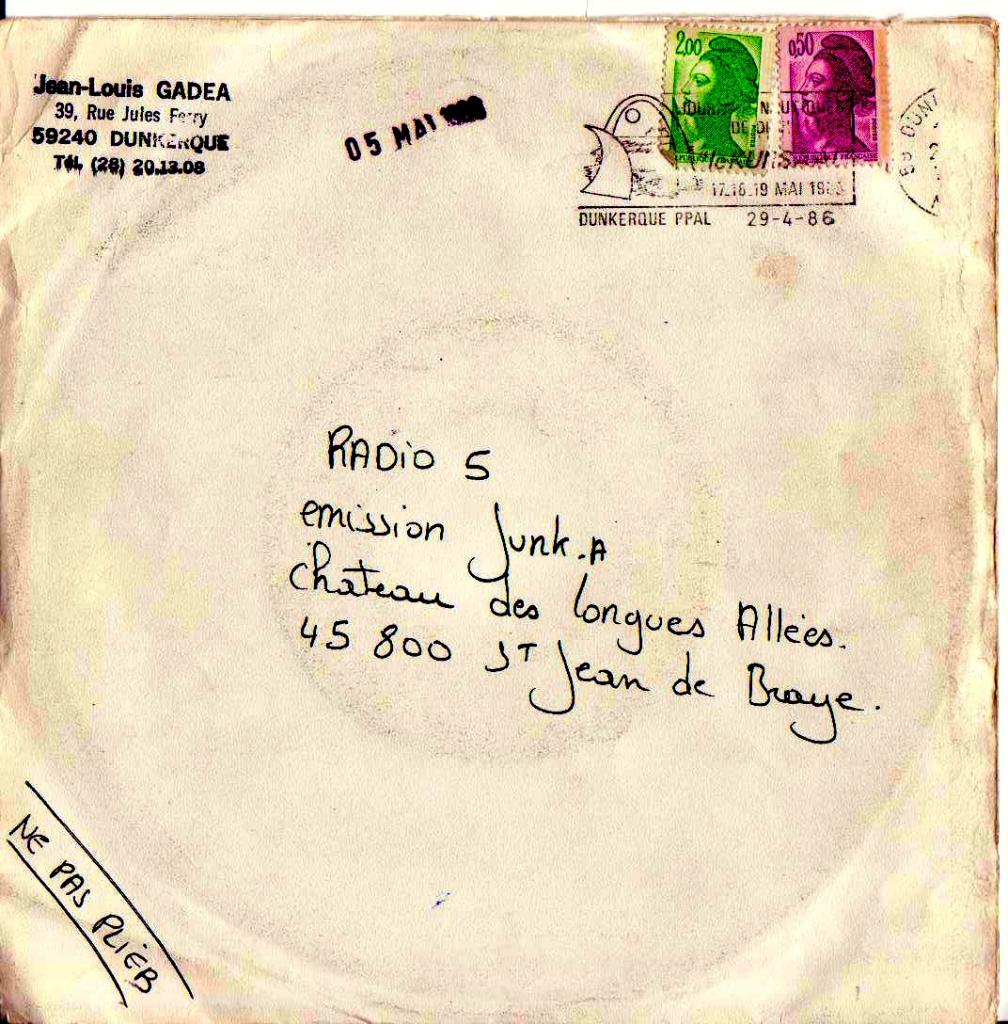 Jean-Louis GADEA
39, Rue Jules Ferry
59240 DUNKERQUE
Tél. (28) 20.13.08
05 MAI
2,00
0,50
17.18.19 MAI
DUNKERQUE PPAL 29-4-86
RADiO 5
emission Junk.A
chateau des longues Allées.
45 800 ST Jean de Braye.
NE PAS PLiER